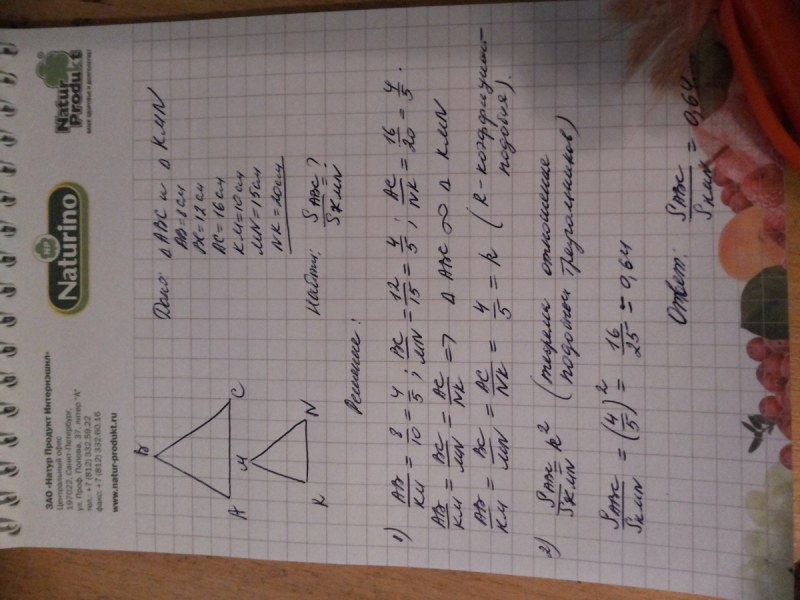 ЗАО «Натур Продукт Интернэшнл»
Центральный офис:
197022, Санкт-Петербург,
ул. Проф. Попова, 37, литер "А"
тел.: +7 (812) 332.59.22
факс: +7 (812) 332.60.16
www.natur-produkt.ru
Naturino
Natur Produkt
Дано: Δ ABC и Δ KMN
AB=8см
BC=12см
AC=16см
KM=10см
MN=15см
NK=20см
Найти: S ABC / S KMN - ?
B
A
C
M
K
N
Решение:
1) AB/KM = 8/10 = 4/5; BC/MN = 12/15 = 4/5; AC/NK = 16/20 = 4/5.
AB/KM = BC/MN = AC/NK => Δ ABC ∞ Δ KMN
AB/KM = BC/MN = AC/NK = 4/5 = k (k-коэффициент
подобия).
2) S ABC / S KMN = k² (теорема отношение
подобных треугольников)
S ABC / S KMN = (4/5)² = 16/25 = 0,64
Ответ: S ABC / S KMN = 0,64